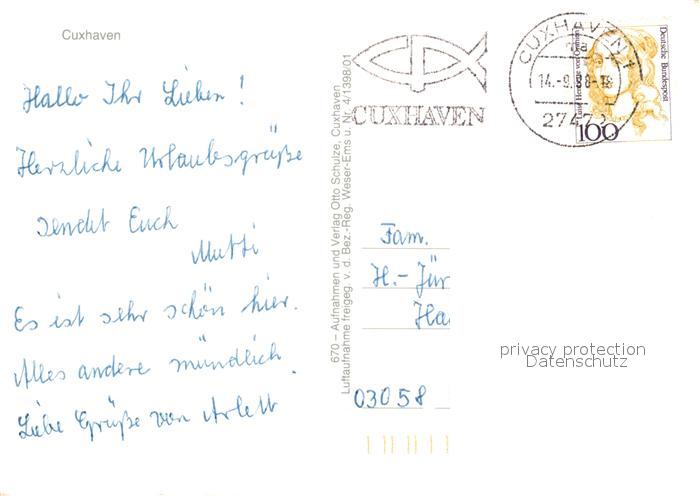 Cuxhaven
Hallo Ihr Lieben!
Herzliche Urlaubsgrüße
sendet Euch
Mutti
Es ist sehr schön hier.
Alles andere mündlich.
Liebe Grüße von Arlett
670 – Aufnahmen und Verlag Otto Schulze, Cuxhaven
Luftaufnahme freigeg. v. d. Bez.-Reg. Weser-Ems u. Nr. 4/1398/01
CUXHAVEN
CUXHAVEN 1
14.-9.98-18
2747
Deutsche Bundespost
100
Fam.
H.-Jür
Ha
03058
privacy protection
Datenschutz